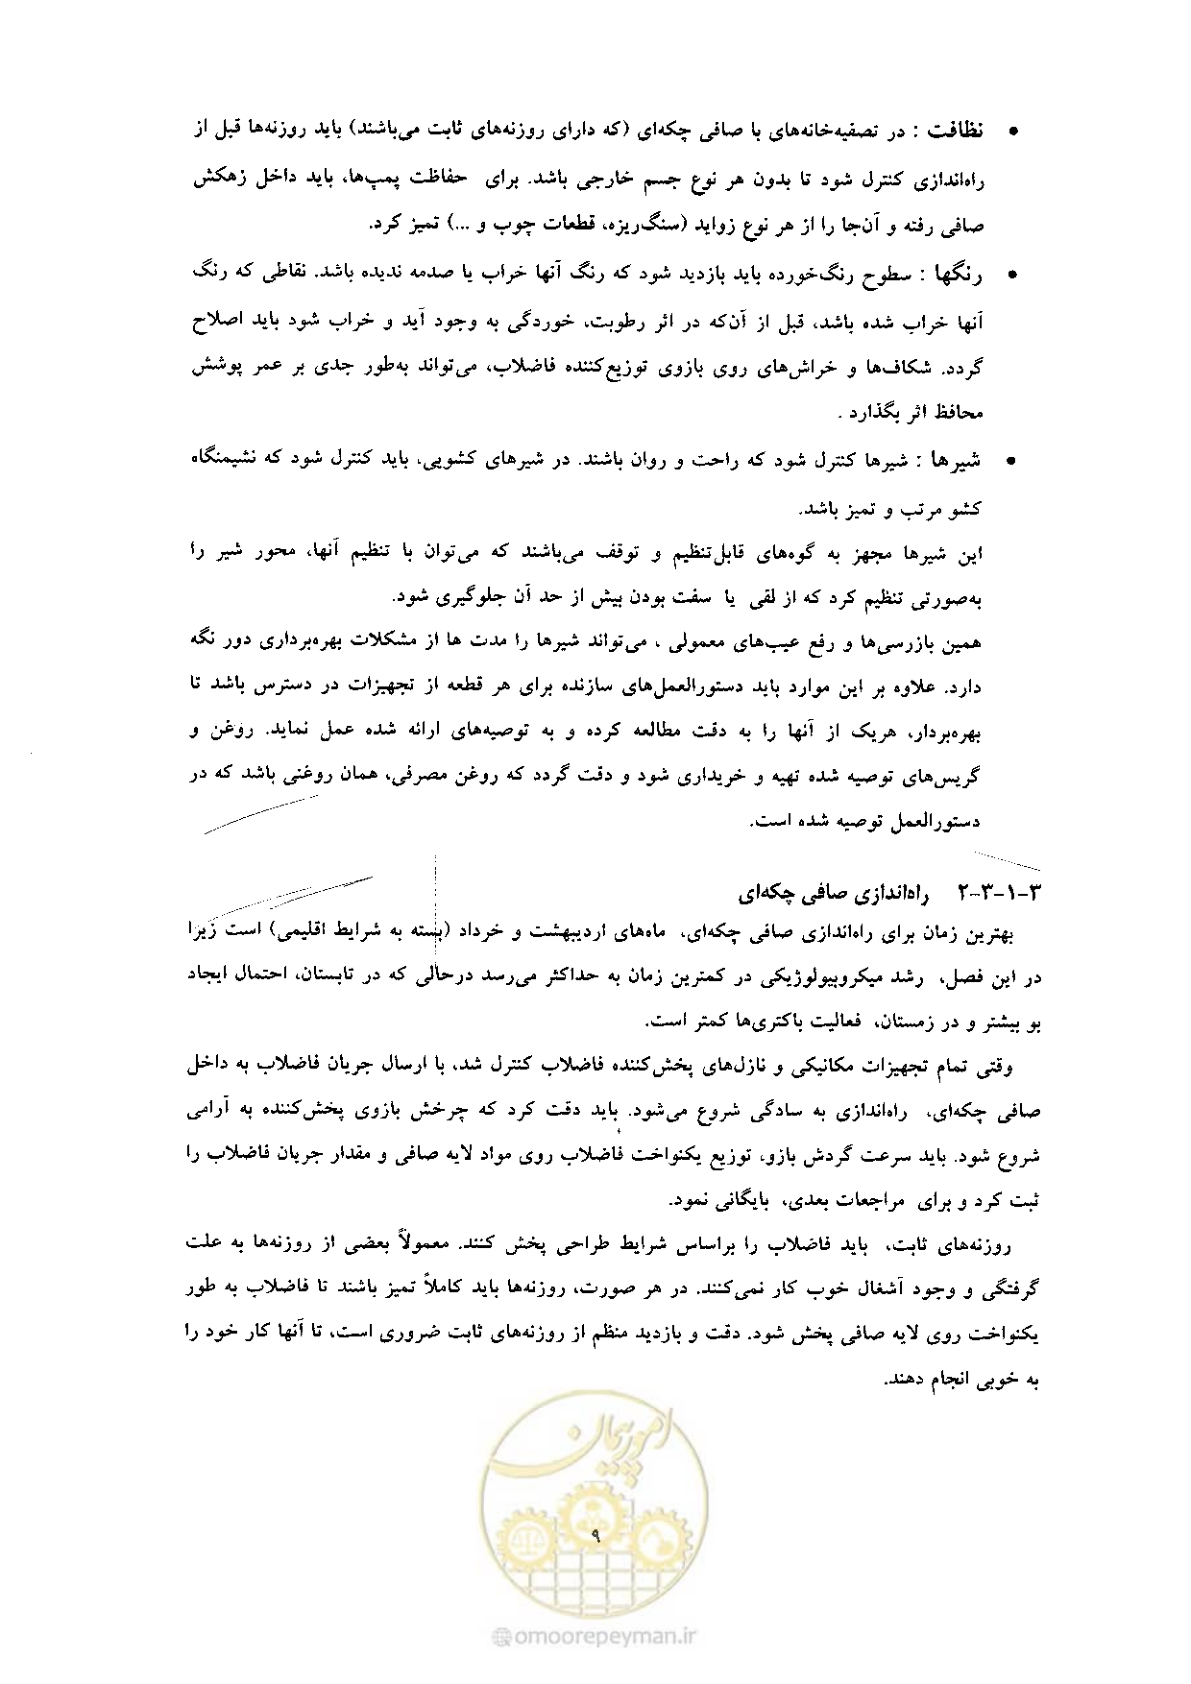 • نظافت : در تصفیه‌خانه‌های با صافی چکه‌ای (که دارای روزنه‌های ثابت می‌باشند) باید روزنه‌ها قبل از
راه‌اندازی کنترل شود تا بدون هر نوع جسم خارجی باشد. برای حفاظت پمپ‌ها، باید داخل زهکش
صافی رفته و آن‌جا را از هر نوع زواید (سنگ‌ریزه، قطعات چوب و ...) تمیز کرد.
• رنگها : سطوح رنگ‌خورده باید بازدید شود که رنگ آنها خراب یا صدمه ندیده باشد. نقاطی که رنگ
آنها خراب شده باشد، قبل از آن‌که در اثر رطوبت، خوردگی به وجود آید و خراب شود باید اصلاح
گردد. شکاف‌ها و خراش‌های روی بازوی توزیع‌کننده فاضلاب، می‌تواند به‌طور جدی بر عمر پوشش
محافظ اثر بگذارد .
• شیرها : شیرها کنترل شود که راحت و روان باشند. در شیرهای کشویی، باید کنترل شود که نشیمنگاه
کشو مرتب و تمیز باشد.
این شیرها مجهز به گوه‌های قابل‌تنظیم و توقف می‌باشند که می‌توان با تنظیم آنها، محور شیر را
به‌صورتی تنظیم کرد که از لقی یا سفت بودن بیش از حد آن جلوگیری شود.
همین بازرسی‌ها و رفع عیب‌های معمولی ، می‌تواند شیرها را مدت ها از مشکلات بهره‌برداری دور نگه
دارد. علاوه بر این موارد باید دستورالعمل‌های سازنده برای هر قطعه از تجهیزات در دسترس باشد تا
بهره‌بردار، هریک از آنها را به دقت مطالعه کرده و به توصیه‌های ارائه شده عمل نماید. روغن و
گریس‌های توصیه شده تهیه و خریداری شود و دقت گردد که روغن مصرفی، همان روغنی باشد که در
دستورالعمل توصیه شده است.
۲-۳-۱-۳ راه‌اندازی صافی چکه‌ای
بهترین زمان برای راه‌اندازی صافی چکه‌ای، ماه‌های اردیبهشت و خرداد (بسته به شرایط اقلیمی) است زیرا
در این فصل، رشد میکروبیولوژیکی در کمترین زمان به حداکثر می‌رسد درحالی که در تابستان، احتمال ایجاد
بو بیشتر و در زمستان، فعالیت باکتری‌ها کمتر است.
وقتی تمام تجهیزات مکانیکی و نازل‌های پخش‌کننده فاضلاب کنترل شد، با ارسال جریان فاضلاب به داخل
صافی چکه‌ای، راه‌اندازی به سادگی شروع می‌شود. باید دقت کرد که چرخش بازوی پخش‌کننده به آرامی
شروع شود. باید سرعت گردش بازو، توزیع یکنواخت فاضلاب روی مواد لایه صافی و مقدار جریان فاضلاب را
ثبت کرد و برای مراجعات بعدی، بایگانی نمود.
روزنه‌های ثابت، باید فاضلاب را براساس شرایط طراحی پخش کنند. معمولاً بعضی از روزنه‌ها به علت
گرفتگی و وجود آشغال خوب کار نمی‌کنند. در هر صورت، روزنه‌ها باید کاملاً تمیز باشند تا فاضلاب به طور
یکنواخت روی لایه صافی پخش شود. دقت و بازدید منظم از روزنه‌های ثابت ضروری است، تا آنها کار خود را
به خوبی انجام دهند.
امور پیمان
۹
@omoorepeyman.ir